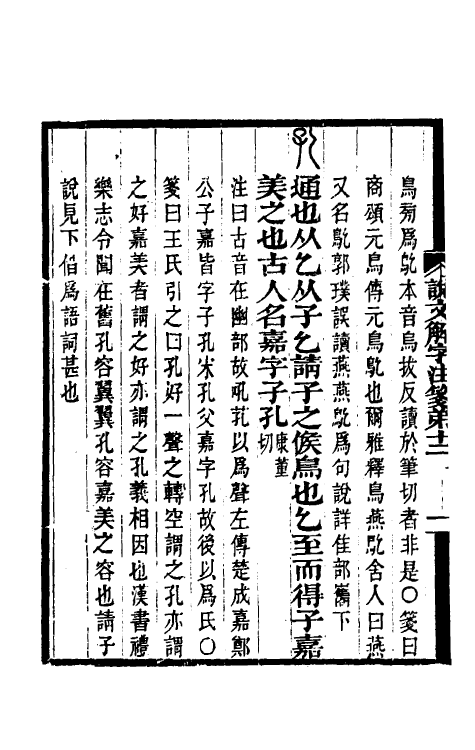 說文解字注箋第十二 一
鳥㫄爲鳦本音烏拔反讀於筆切者非是〇箋曰
商頌元鳥傳元鳥鳦也爾雅釋鳥燕鳦舍人曰燕
又名鳦郭璞誤讀燕燕鳦爲句說詳隹部巂下
孔 通也从乙从子乙請子之候鳥也乙至而得子嘉
美之也古人名嘉字子孔康董切
注曰古音在幽部故吼芤以爲聲左傳楚成嘉鄭
公子嘉皆字子孔宋孔父嘉字孔故後以爲氏〇
箋曰王氏引之曰孔好一聲之轉空謂之孔亦謂
之好嘉美者謂之好亦謂之孔義相因也漢書禮
樂志令聞在舊孔容翼翼孔容嘉美之容也請子
說見下借爲語詞甚也